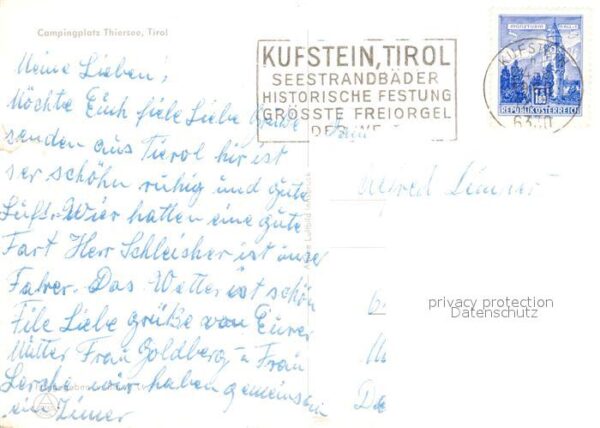 Campingplatz Thiersee, Tirol
Meine Lieben!
Möchte Euch fiele Liebe Grüße
senden aus Tierol hir ist
ser schöhn ruhig und gute
Luft. Wier hatten eine gute
Fart Herr Schleisher ist unser
Fahrer. Das Wetter ist schön
File Liebe grüße von Eurer
Mutter Frau Goldberg u Frau
Lerche wir haben gemeinsam
ein Zimer
KUFSTEIN, TIROL
SEESTRANDBÄDER
HISTORISCHE FESTUNG
GRÖSSTE FREIORGEL
DER WELT
REPUBLIK ÖSTERREICH
KUFSTEIN
6330
Alfred
privacy protection
Datenschutz